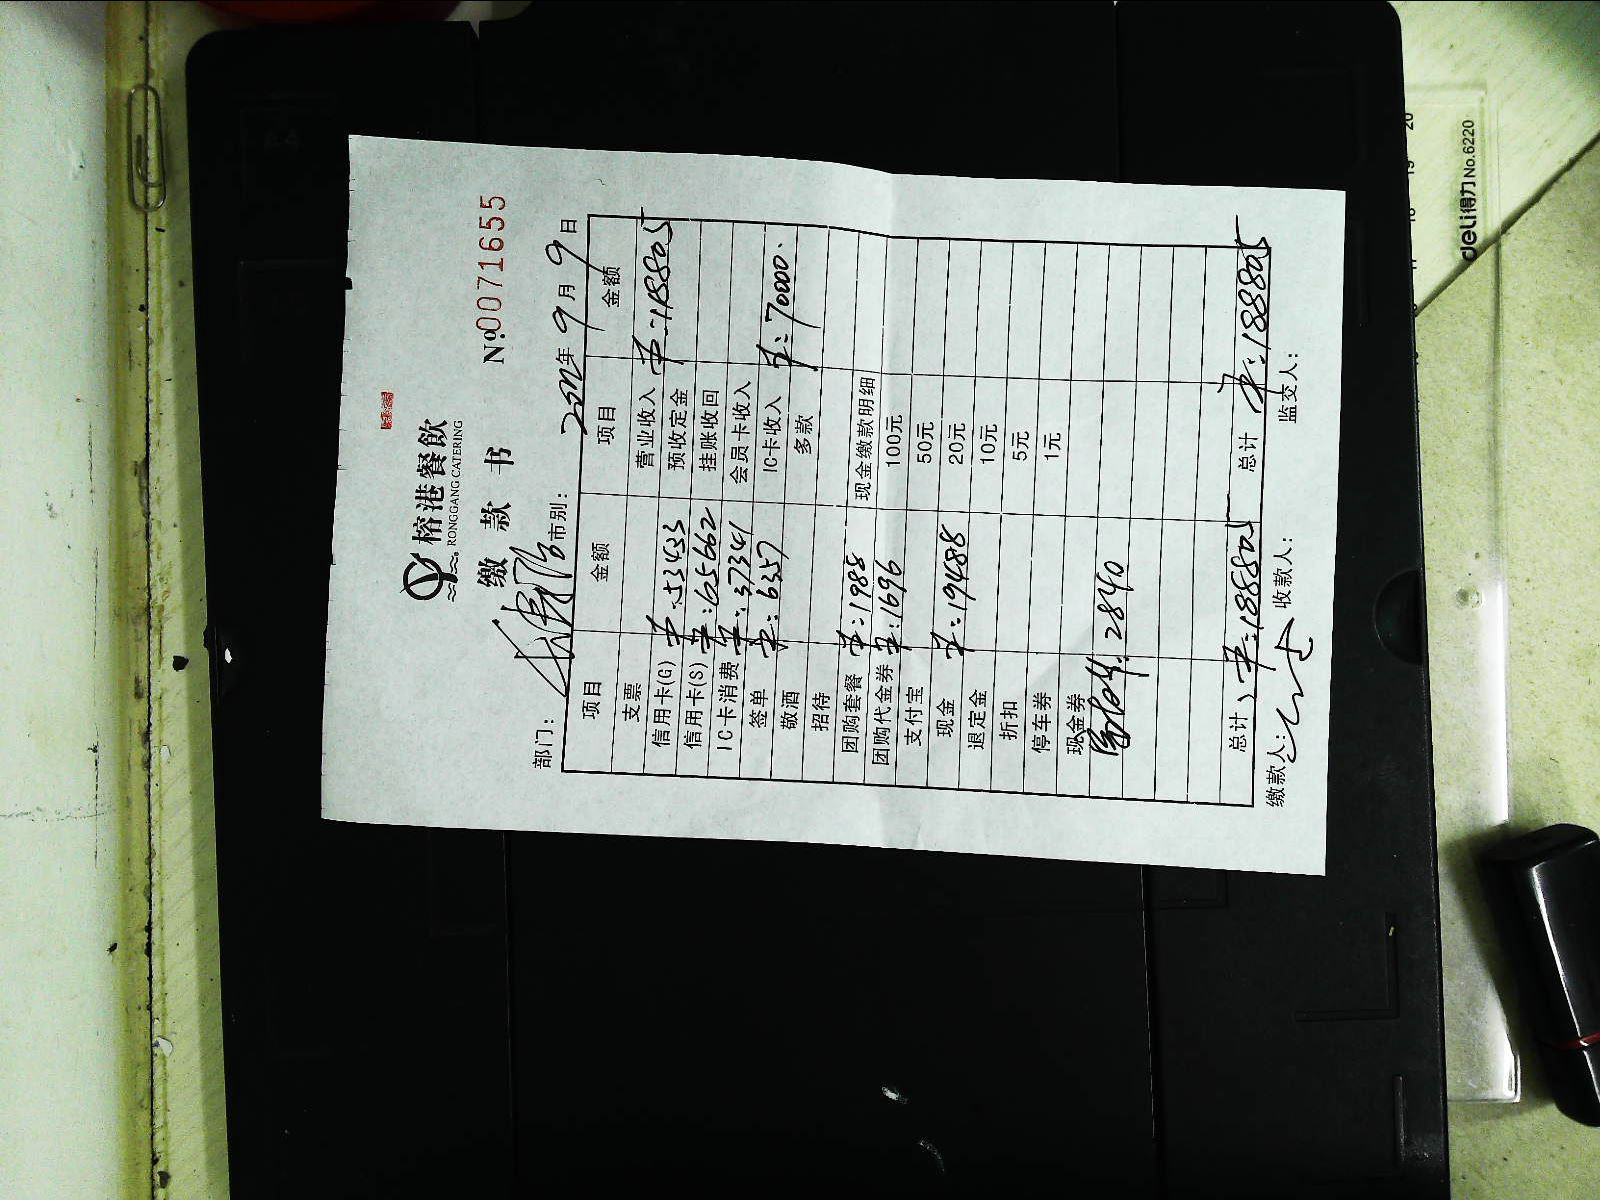 榕港餐飲
RONGGANG CATERING
缴 款 书
№0071655
部门： 市别： 年 9月 9日
项目 金额 项目 金额
支票 营业收入 羊:118805
信用卡(G) 羊:53433 预收定金
信用卡(S) 羊:65662 挂账收回
IC卡消费 羊:37341 会员卡收入
签单 羊:6357 IC卡收入 羊:70000.
敬酒 多款
招待
团购套餐 羊:1988 现金缴款明细
团购代金券 羊:1696 100元
支付宝 50元
现金 羊:19488 20元
退定金 10元
折扣 5元
停车券 1元
现金券
2840
总计 羊:188805 总计 羊:188805
缴款人： 收款人： 监交人：
deli得力 No.6220
20
19